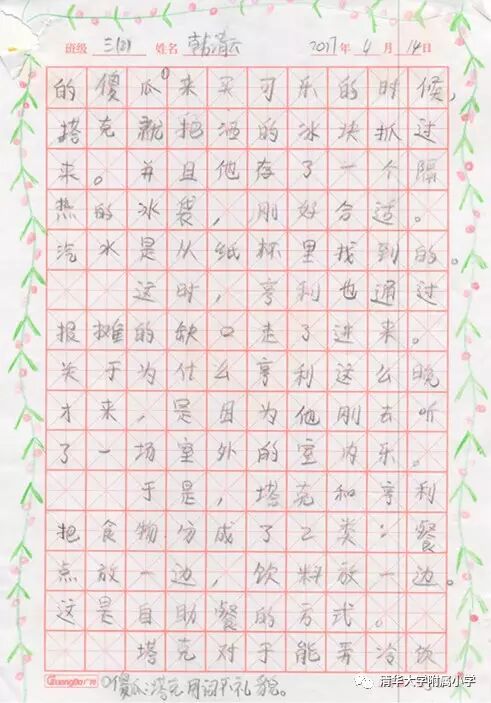 班级 三(2) 姓名 韩清云 2017年 4 月 14日
的傻瓜①来买可乐的时候,
塔克就把洒的冰块抓过
来。并且他存了一个隔
热的冰袋,刚好合适。
汽水是从纸杯里找到的。
这时,亨利也通过
报摊的缺口走了进来。
关于为什么亨利这么晚
才来,是因为他刚去听
了一场室外的室内乐。
于是,塔克和亨利
把食物分成了2类:餐
点放一边,饮料放一边。
这是自助餐的方式。
塔克对于能弄冷饮
GuangBo广博 ①傻瓜:塔克用词不礼貌。
清华大学附属小学